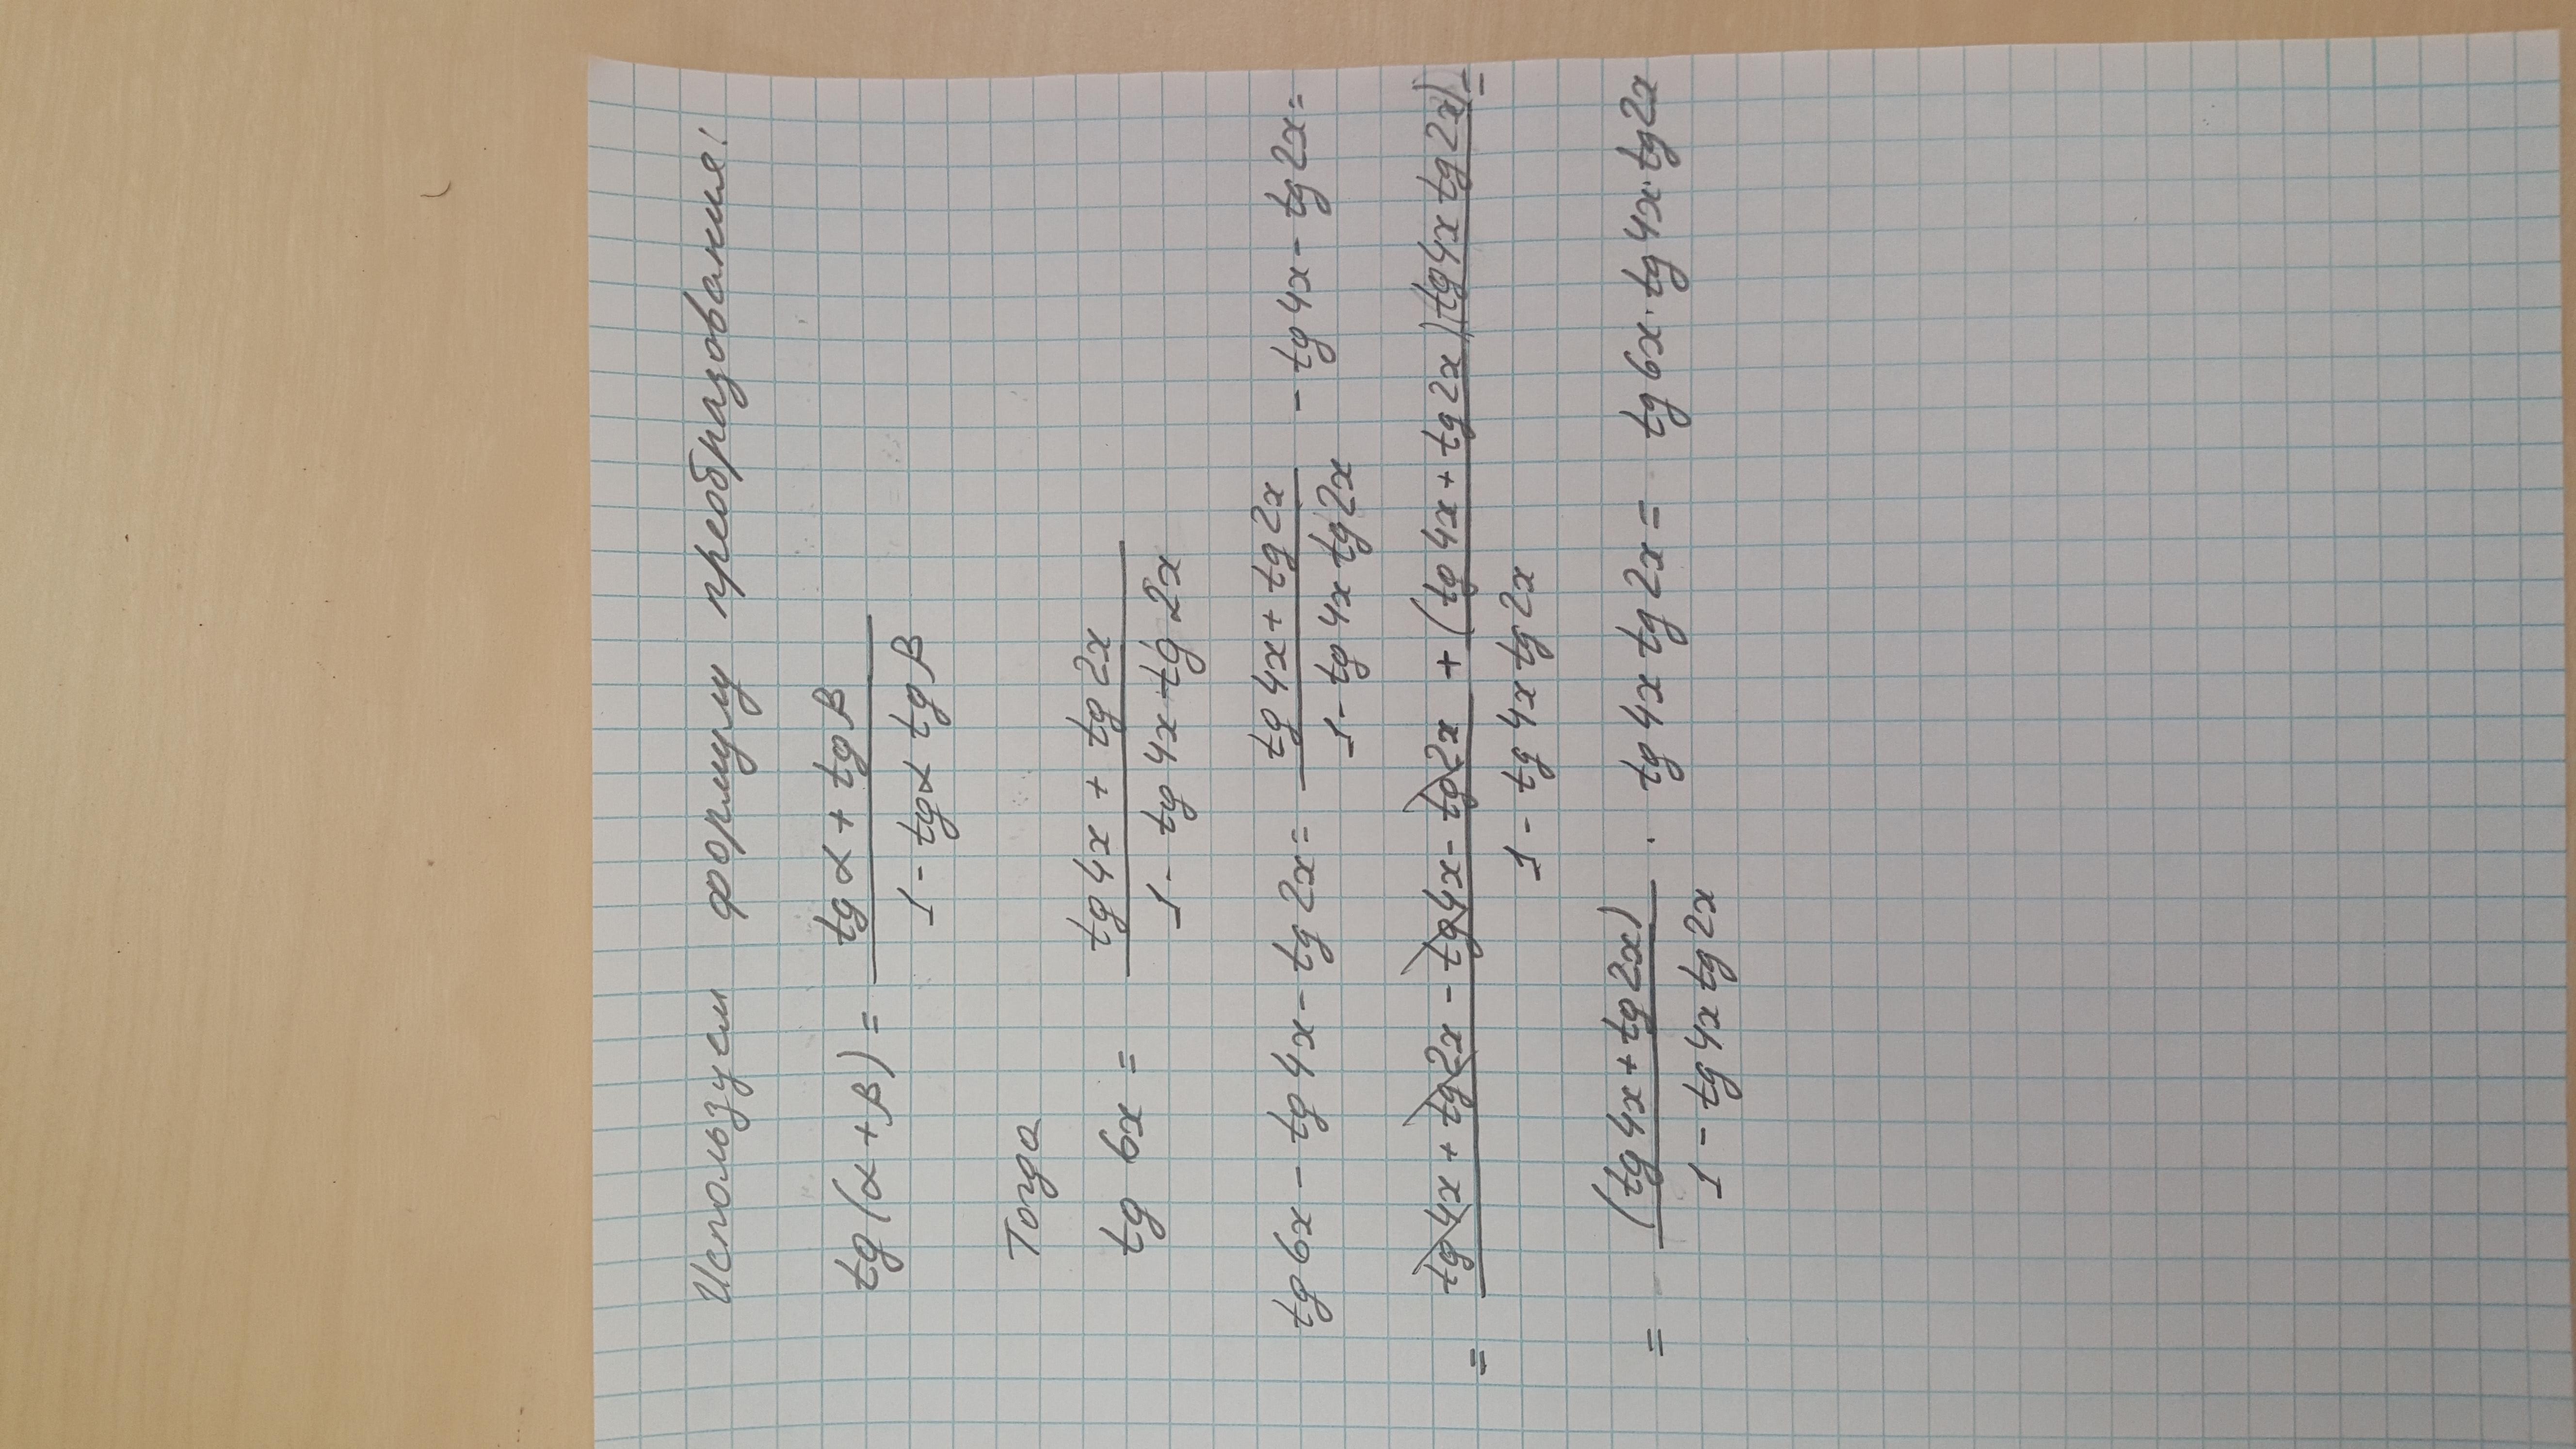 Используем формулу преобразования:
tg(α+β) = (tgα + tgβ) / (1 - tgα tgβ)
Тогда
tg 6x = (tg4x + tg2x) / (1 - tg4x tg2x)
tg6x - tg4x - tg2x = (tg4x + tg2x) / (1 - tg4x tg2x) - tg4x - tg2x =
= (tg4x + tg2x - tg4x - tg2x + (tg4x + tg2x)(tg4x tg2x)) / (1 - tg4x tg2x) =
= (tg4x + tg2x) / (1 - tg4x tg2x) · tg4x tg2x = tg6x · tg4x · tg2x